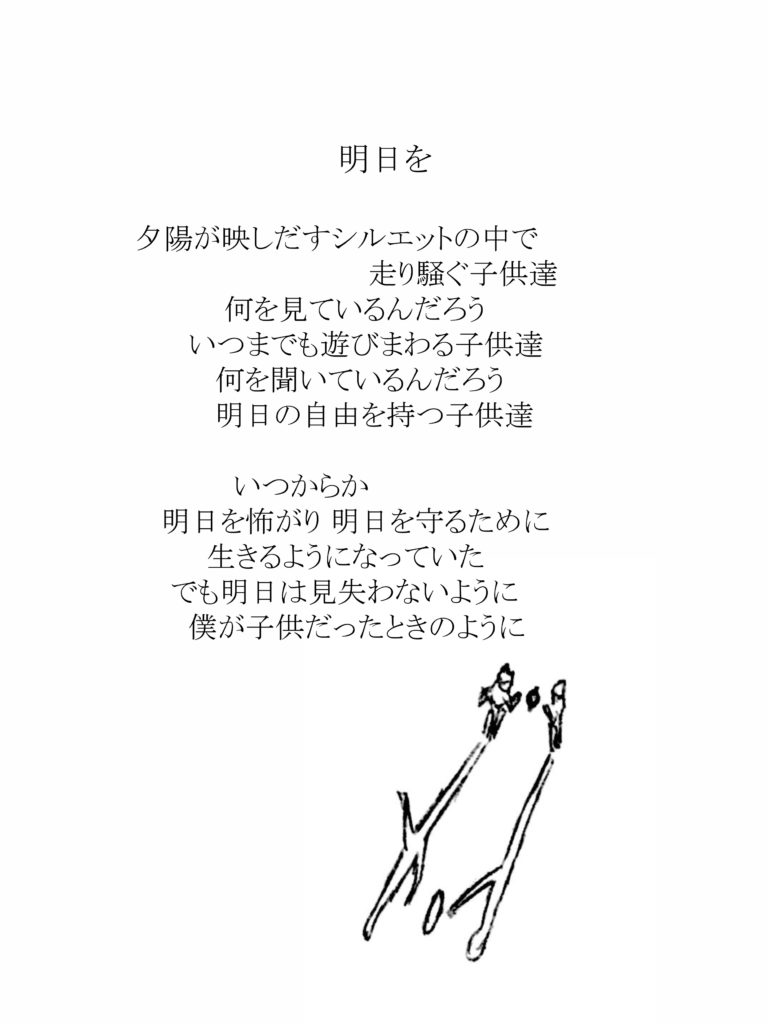 明日を
夕陽が映しだすシルエットの中で
走り騒ぐ子供達
何を見ているんだろう
いつまでも遊びまわる子供達
何を聞いているんだろう
明日の自由を持つ子供達
いつからか
明日を怖がり 明日を守るために
生きるようになっていた
でも明日は見失わないように
僕が子供だったときのように